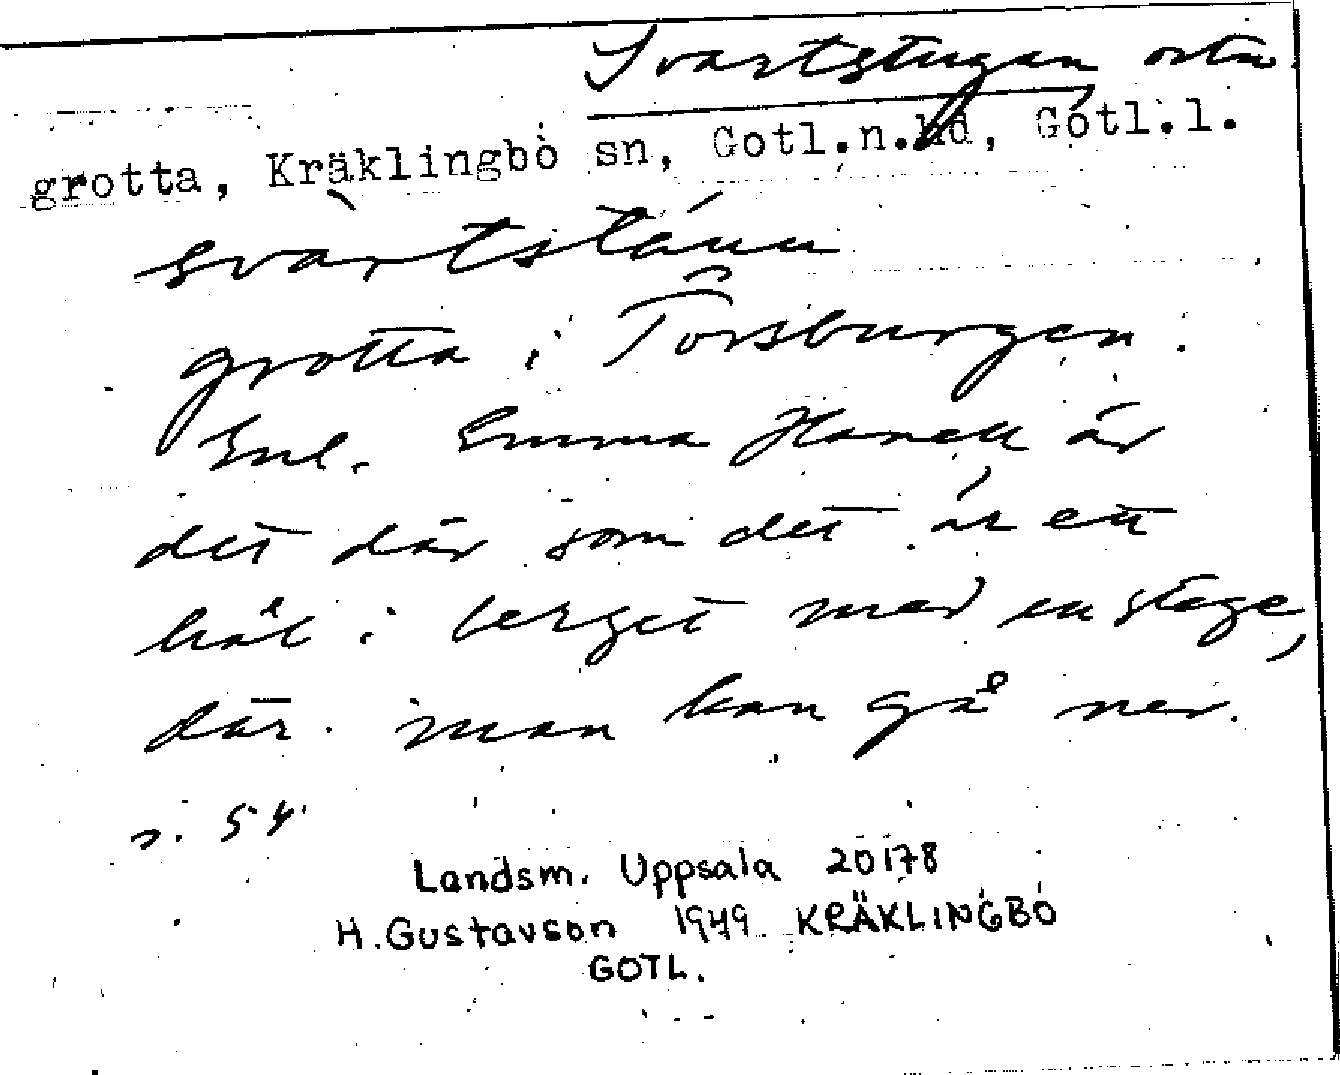 Svartstugan
grotta, Kräklingbo sn, Gotl.n.hd, Gotl.l.
svartstáuu
grotta i Torsburgen.
Enl. Emma Hanell är
det där som det är ett
hål i berget med en stege,
där man kan gå ner.
s. 54
Landsm. Uppsala 20178
H. Gustavson 1949 KRÄKLINGBO
GOTL.